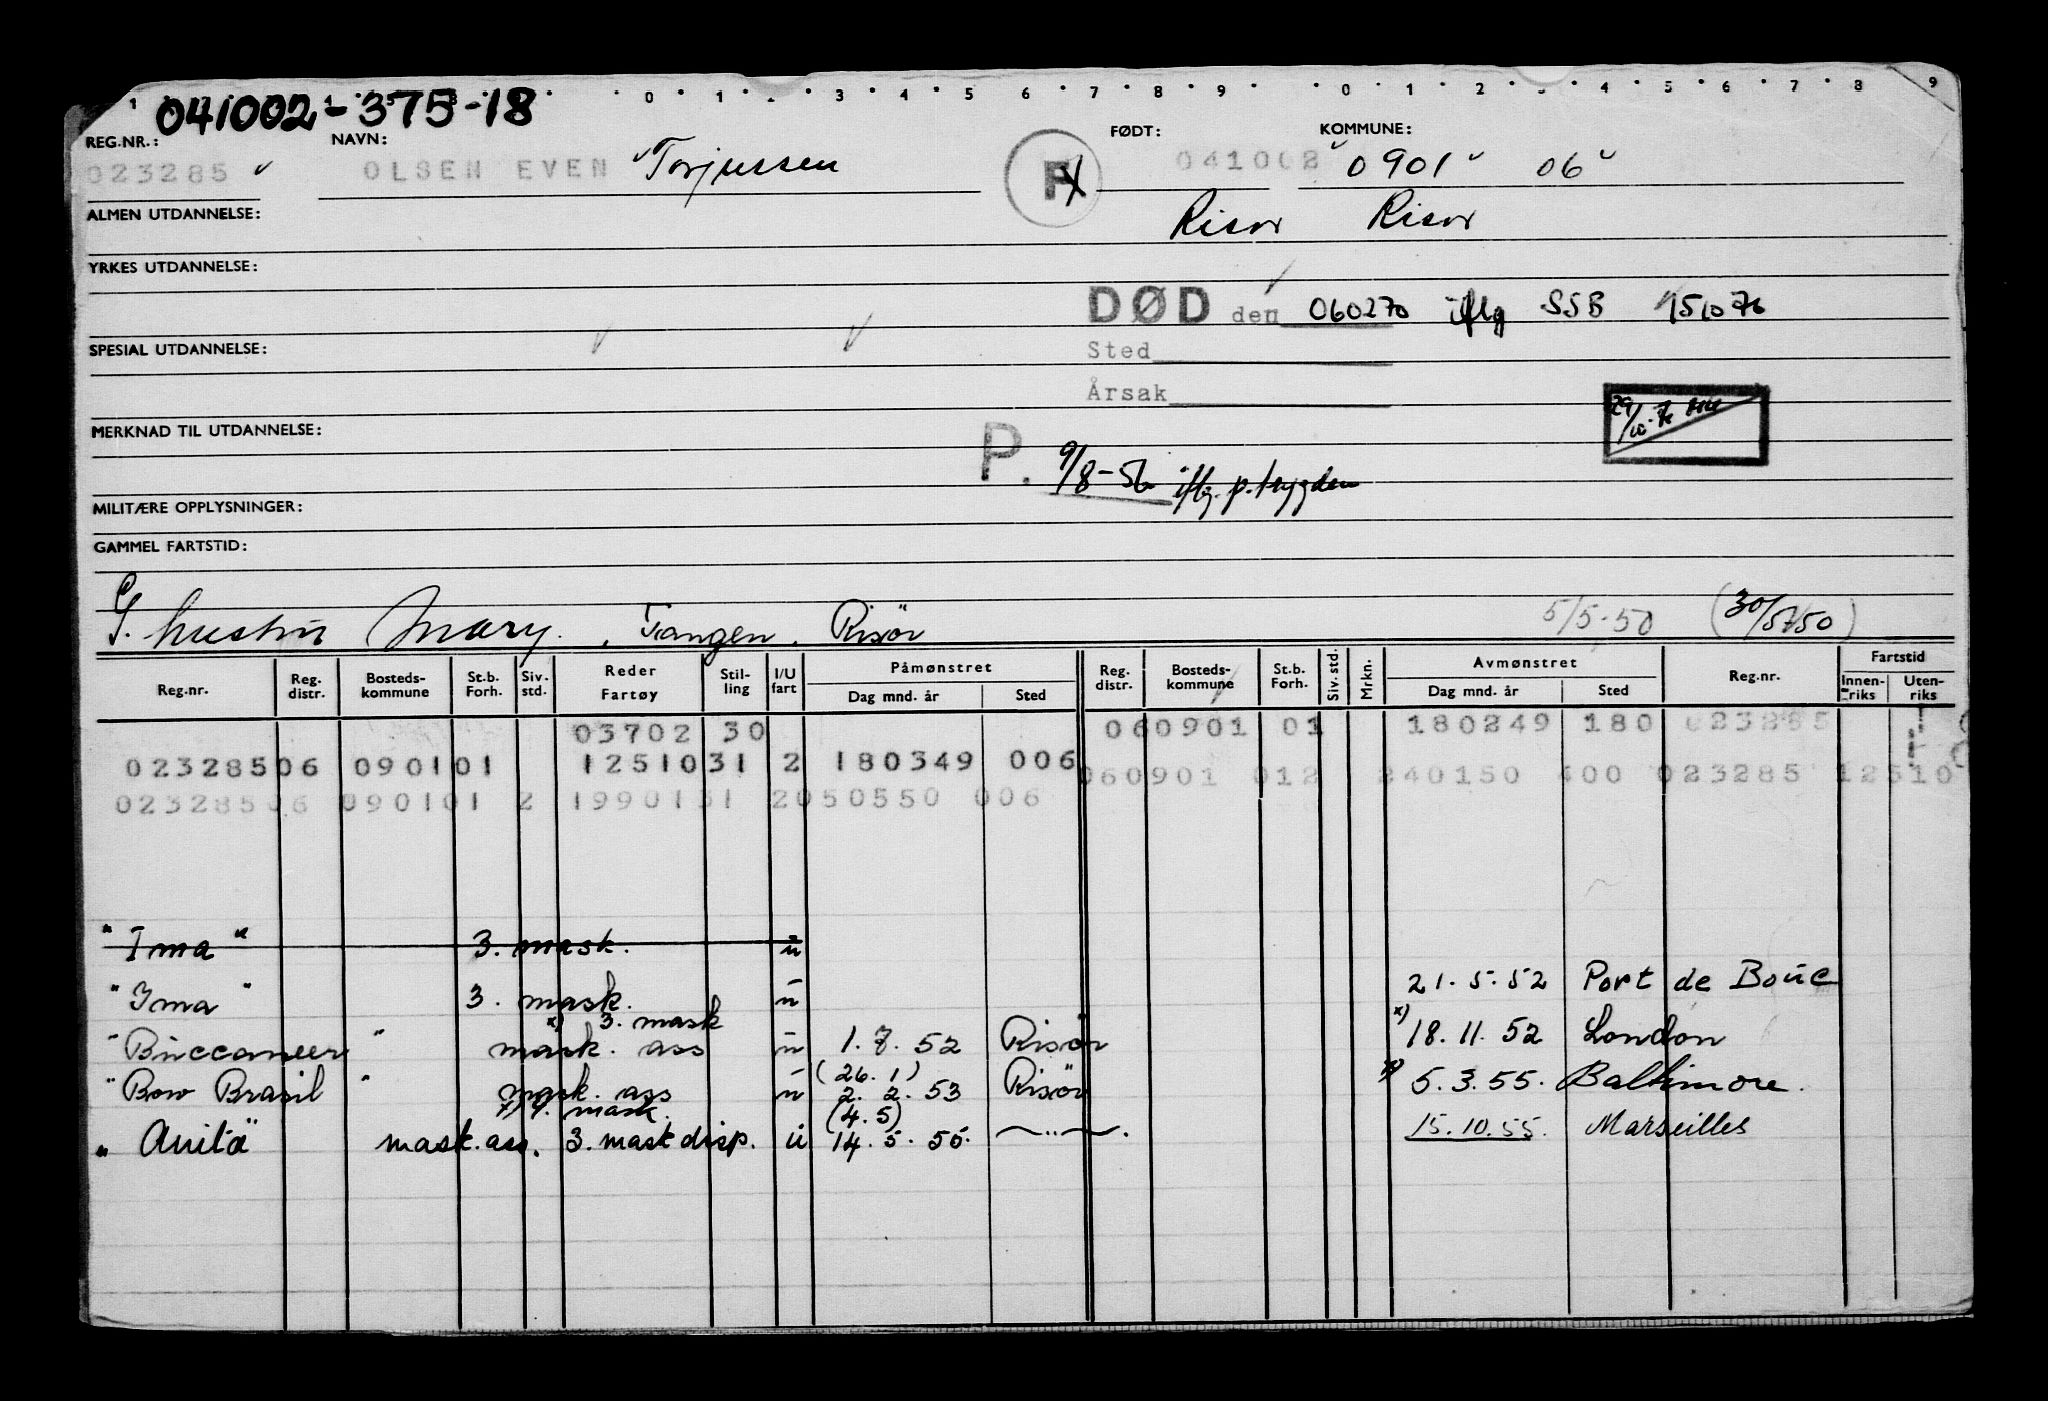 1 0 1 3 4 5 6 7 8 9 0 1 2 3 4 5 6 7 8 9
041002-375-18
REG.NR.: NAVN: FØDT: KOMMUNE:
023285 OLSEN EVEN Torjussen F 041002 0901 06
ALMEN UTDANNELSE: Risør Risør
YRKES UTDANNELSE:
DØD den 060270 iflg SSB 151076
SPESIAL UTDANNELSE: Sted
Årsak
29/10-76
MERKNAD TIL UTDANNELSE:
P. 9/8-56 iflg. p.trygden
MILITÆRE OPPLYSNINGER:
GAMMEL FARTSTID:
G. hustru Mary, Tangen, Risör 5/5-50 (30/5-50)
Reg.nr. Reg. distr. Bosteds-kommune St.b. Forh. Siv. std. Reder Fartøy Stil-ling I/U fart Påmønstret Dag mnd. år Sted Reg. distr. Bosteds-kommune St.b. Forh. Siv. std. Mrkn. Avmønstret Dag mnd. år Sted Reg.nr. Fartstid Innen-riks Uten-riks
03702 30 060901 01 180249 180 023285
023285 06 0901 01 12510 31 2 180349 006 060901 012 240150 400 023285 12510
023285 06 0901 01 2 19901 31 2 050550 006
"Ima" 3. mask. u
"Ima" 3. mask. u 21.5.52 Port de Bouc
x) 3. mask
"Buccaneer" mask. ass u 1.8.52 Risör x) 18.11.52 London
(26.1)
"Bow Brasil" mask. ass u 2.2.53 Risör x) 5.3.55. Baltimore.
mask. (4.5)
"Anita" mask.ass. 3. mask disp. u 14.5.55. —"—. 15.10.55. Marseilles